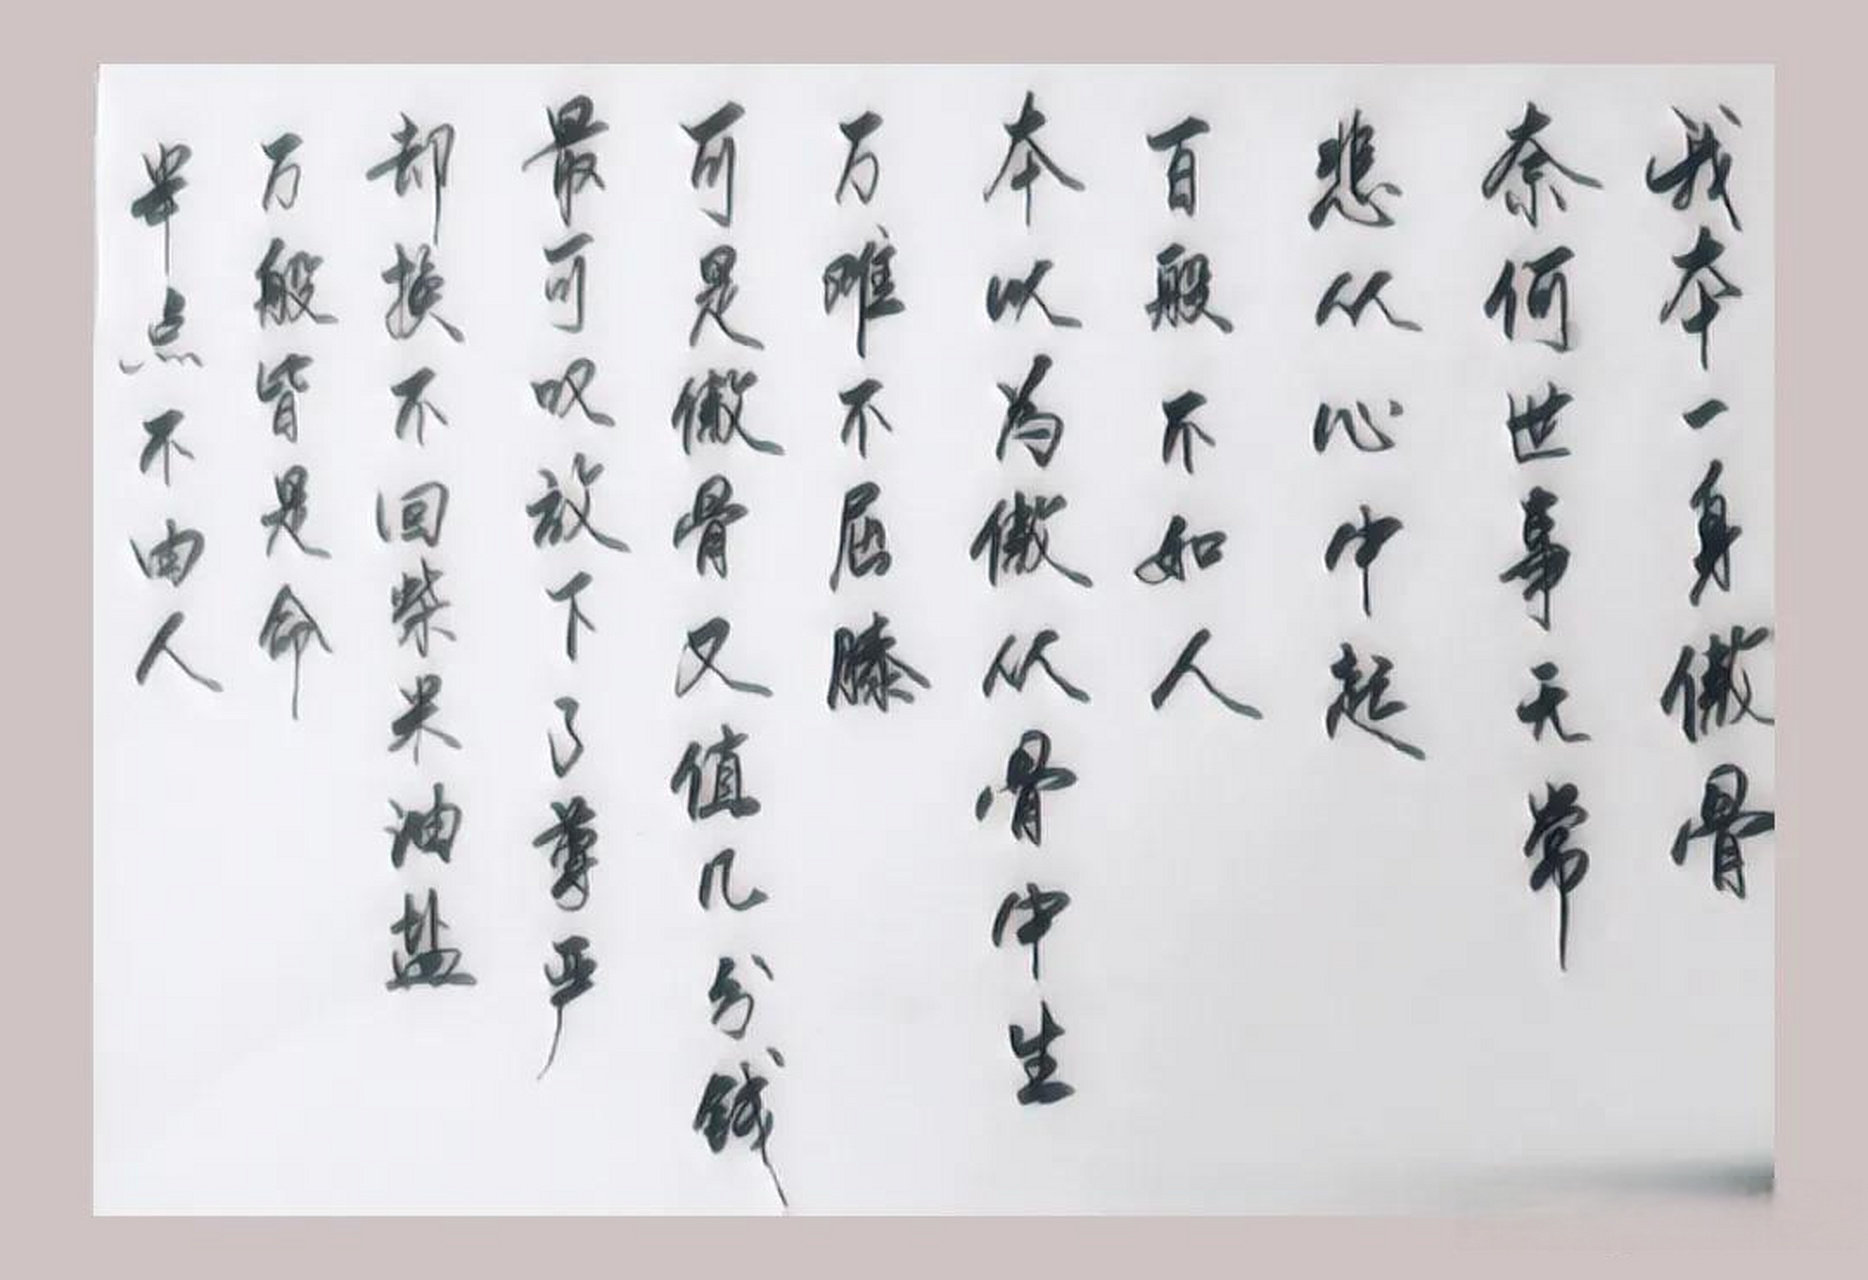 我本一身傲骨
奈何世事无常
悲从心中起
百般不如人
本以为傲从骨中生
万难不屈膝
可是傲骨又值几分钱
最可叹放下了尊严
却换不回柴米油盐
万般皆是命
半点不由人